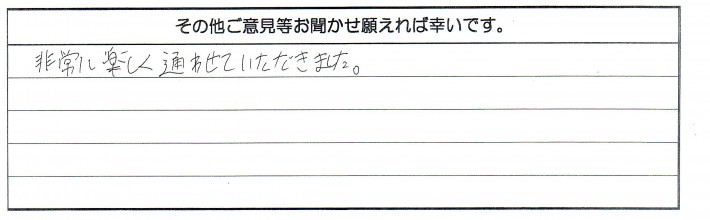 その他ご意見等お聞かせ願えれば幸いです。
非常に楽しく通わせていただきました。